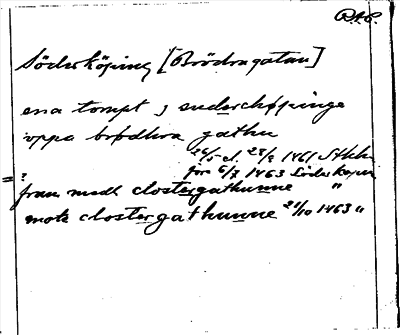 Söderköping [Brödragatan]
ena tompt j suderchøpinge
vppa brødhra gathu
26/5 el. 28/8 1461 Sthlm
före 6/7 1463 Söderköping
? fram medh clostergathunne "
mote clostergathunne 29/10 1463 "